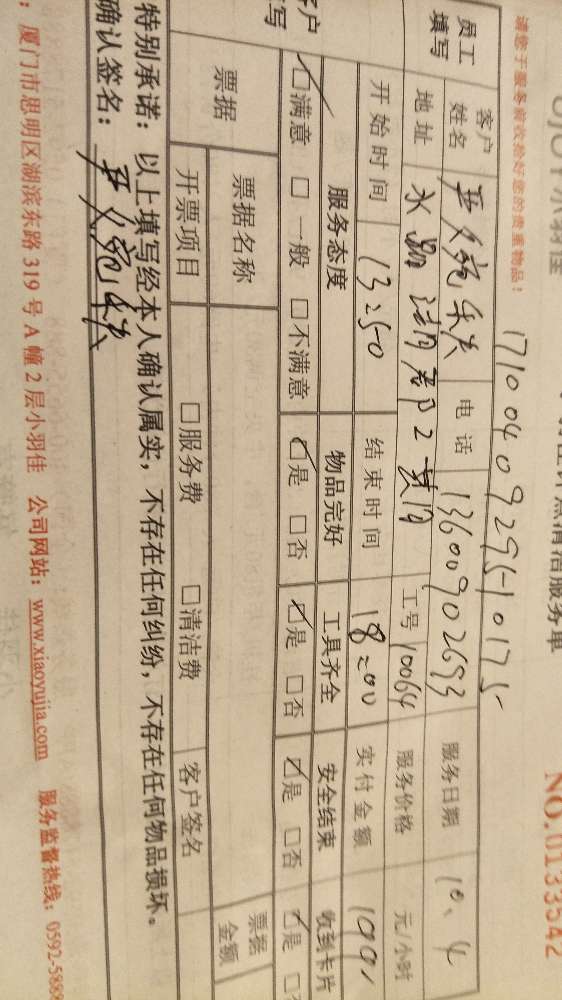 小羽佳
计点清洁服务单
NO.0133542
请您于服务前收拾好您的贵重物品!
1710040929510175
员工填写 客户姓名 电话 13600902693 服务日期 10.4
地址 水晶 2 工号 10064 服务价格 元/小时
开始时间 13:50 结束时间 18:00 实付金额
客户填写 服务态度 物品完好 工具齐全 安全结束 收到卡片
☑满意 □一般 □不满意 ☑是 □否 ☑是 □否 ☑是 □否 ☑是 □否
票据 票据名称 票据金额
开票项目 □服务费 □清洁费 客户签名
特别承诺:以上填写经本人确认属实,不存在任何纠纷,不存在任何物品损坏。
确认签名:
:厦门市思明区湖滨东路 319 号 A 幢 2 层小羽佳 公司网站:www.xiaoyujia.com 服务监督热线:0592-5888